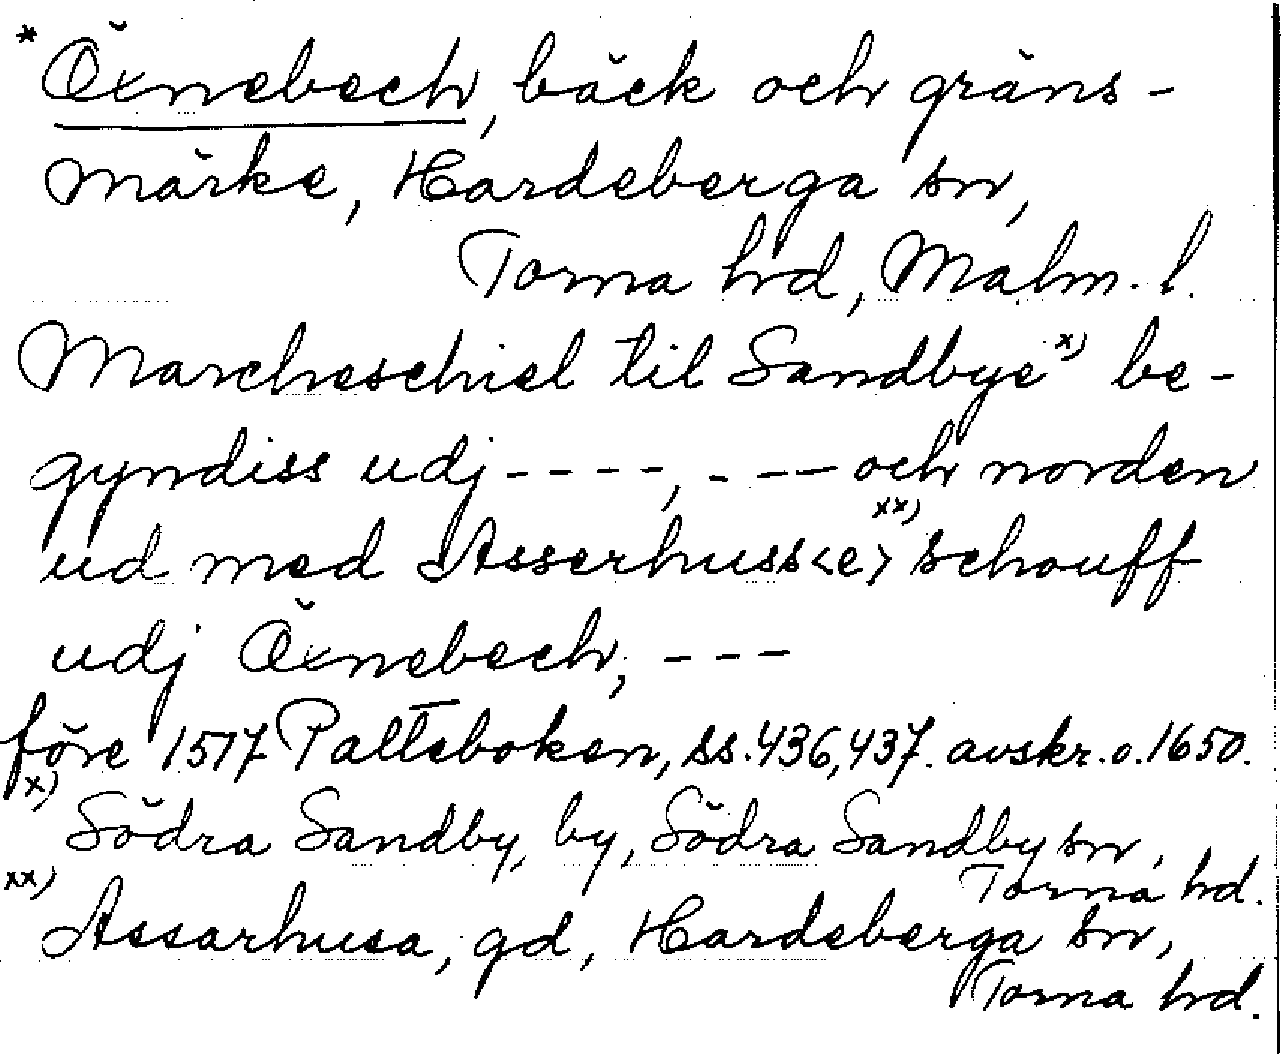 * Öxnebech, bäck och gräns-
märke, Hardeberga sn,
Torna hd, Malm. l.
Marcheschiel til Sandbye x) be-
gyndiss udj ----, --- och norden
ud med Asserhuss<e> xx) schouff
udj Öxnebech, ---
före 1517 Palteboken, ss. 436, 437. avskr. o. 1650.
x) Södra Sandby, by, Södra Sandby sn,
Torna hd.
xx) Assarhusa, gd, Hardeberga sn,
Torna hd.